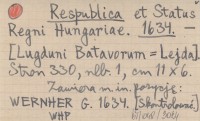 Respublica et Status
Regni Hungariae. 1634. —
[Lugduni Batavorum = Lejda].
Stron 330, nlb. 1, cm 11 x 6.
Zawiera m. in. pozycję:
WERNHER G. 1634. [Skontrolować]
WHP